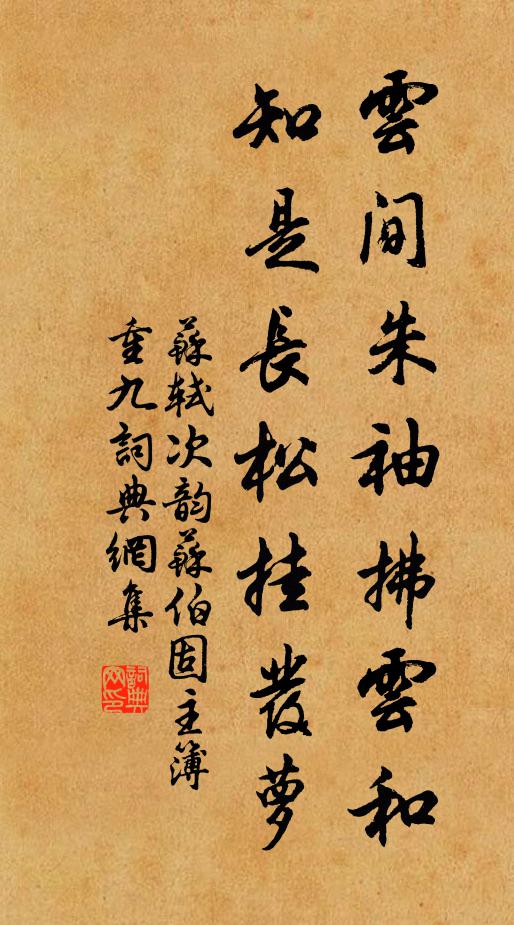 雲間朱袖拂雲和
知是長松挂發夢
蘇軾次韵蘇伯固主簿
重九詞典網集
詞典網印